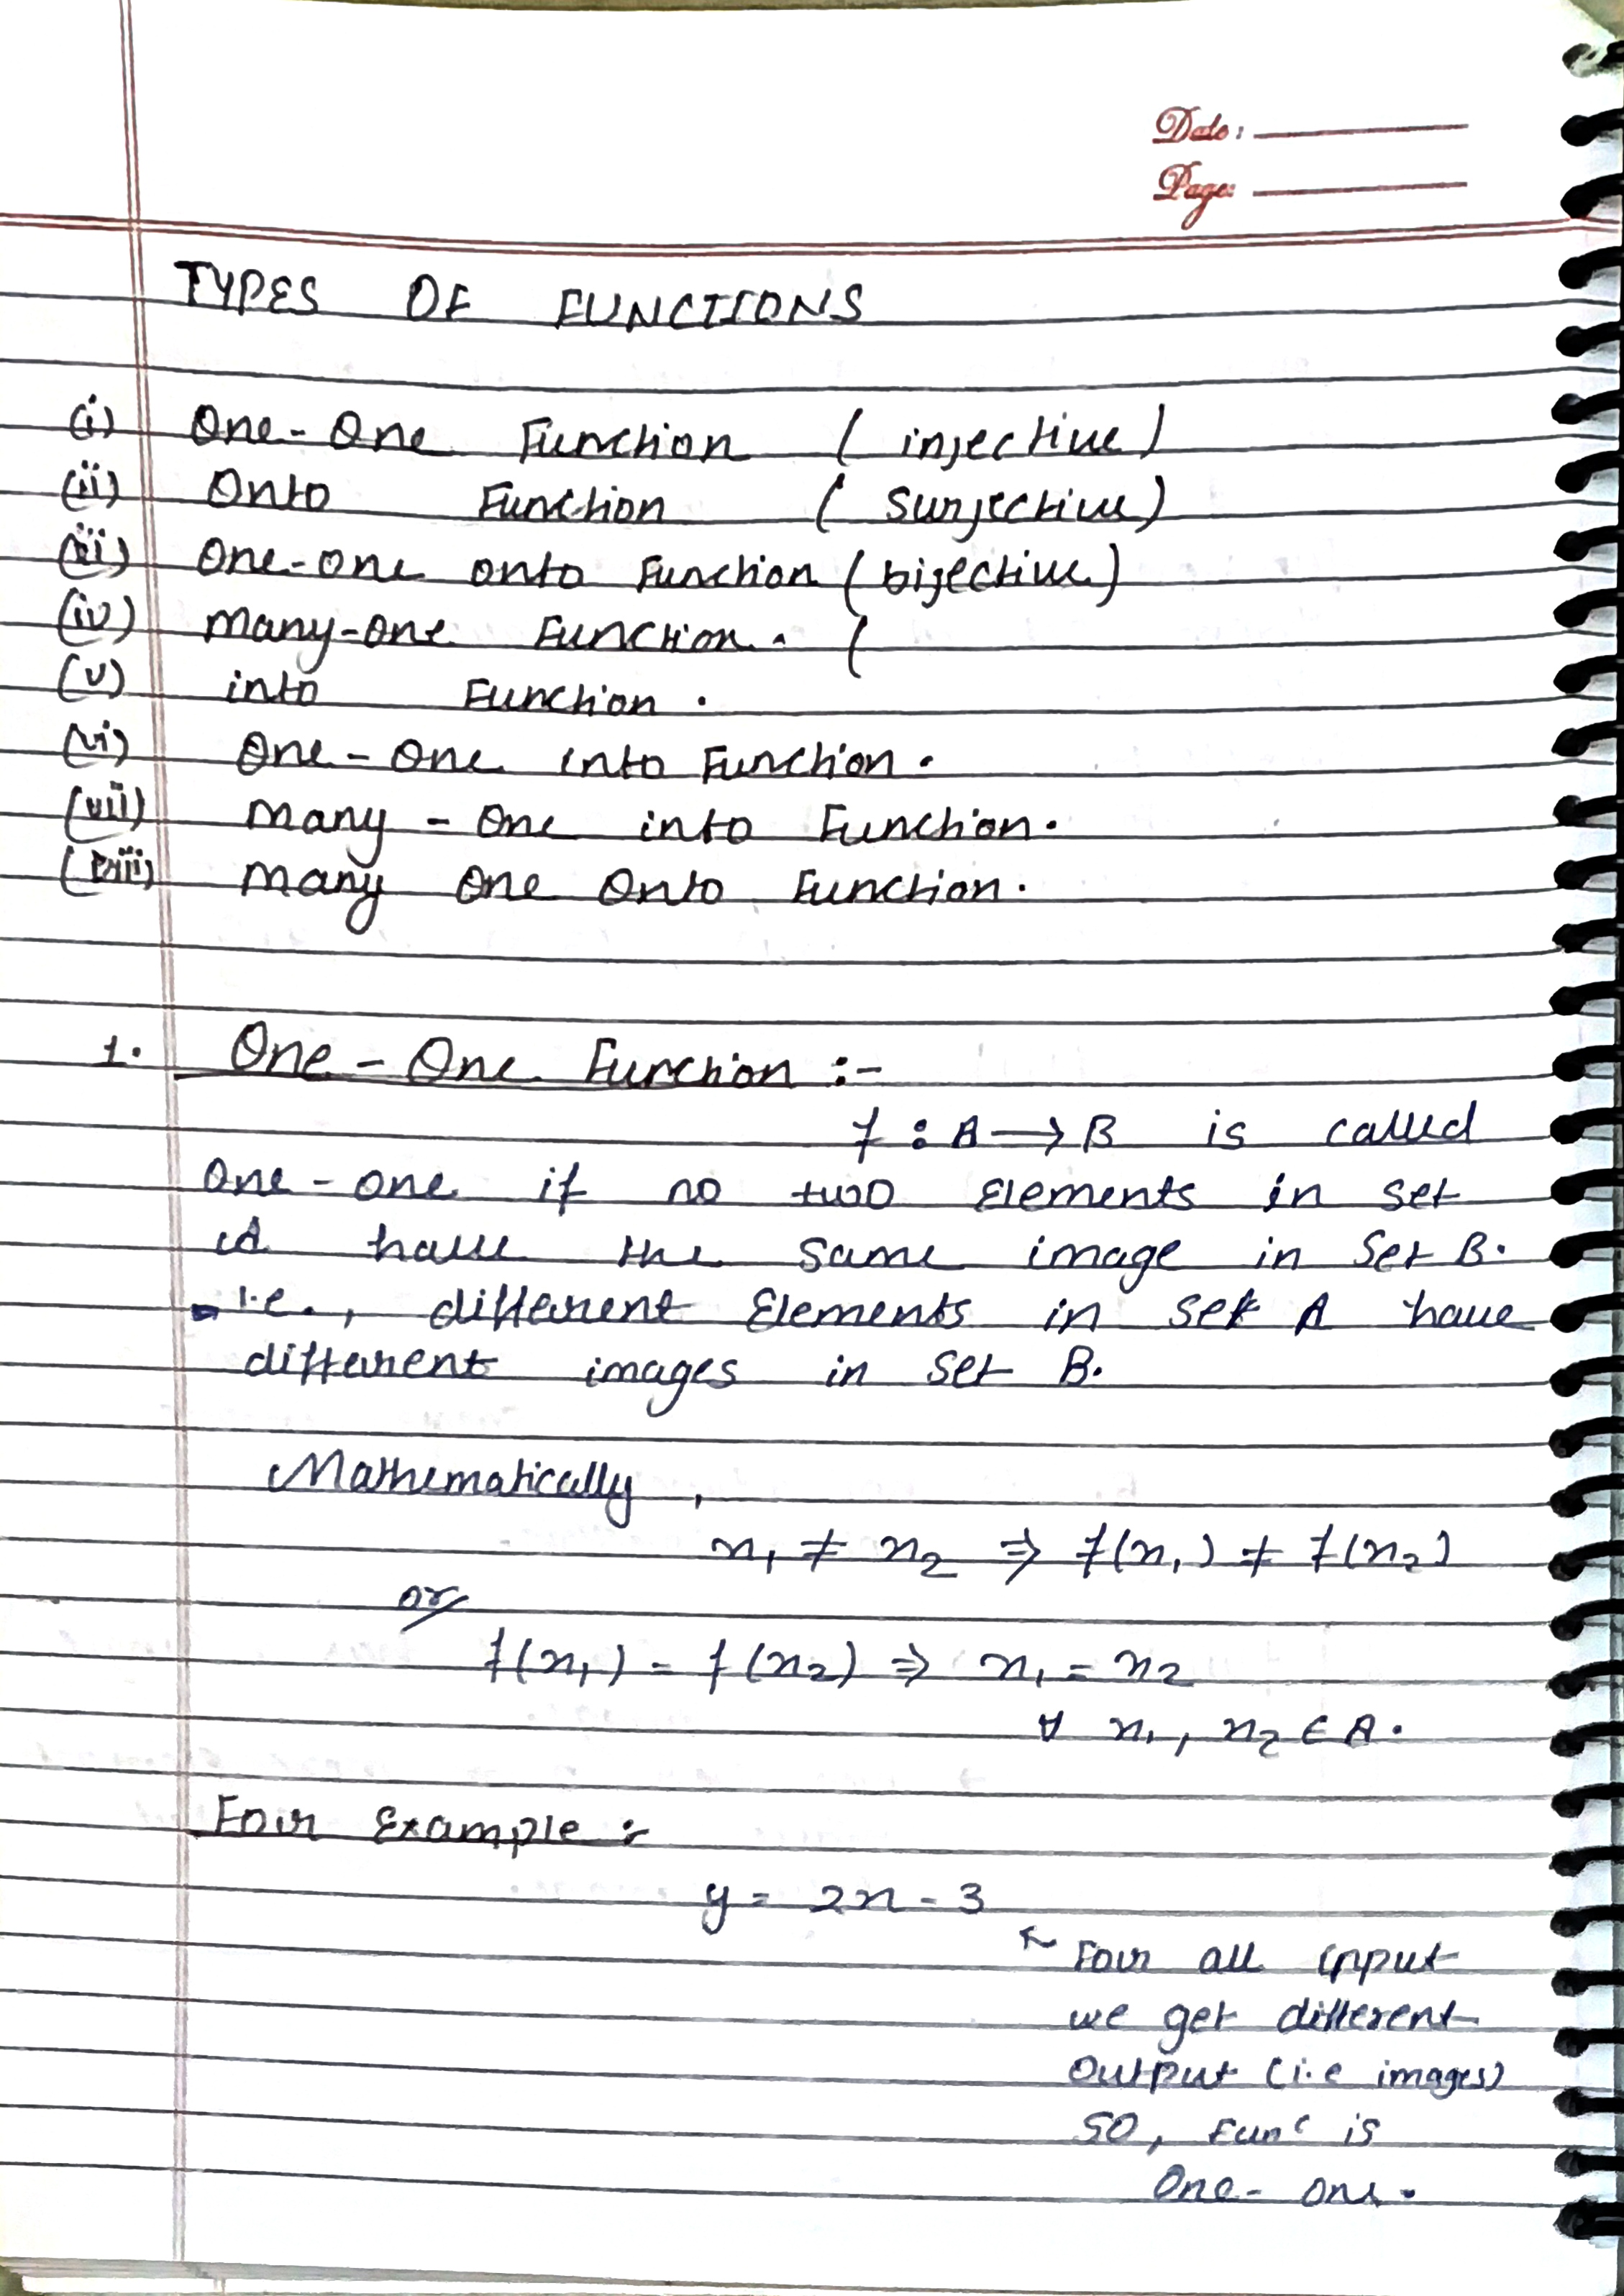 Date:
Page:
TYPES OF FUNCTIONS
(i) One-One Function (injective)
(ii) Onto Function (Surjective)
(iii) One-one onto Function (bijective)
(iv) many-one Function. (
(v) into Function.
(vi) One-One into Function.
(vii) many-One into Function.
(viii) many One Onto Function.
1. One-One Function :-
f : A → B is called
One-one if no two Elements in set
A have the same image in Set B.
i.e., different Elements in set A have
different images in set B.
Mathematically,
x₁ ≠ x₂ ⇒ f(x₁) ≠ f(x₂)
or
f(x₁) = f(x₂) ⇒ x₁ = x₂
∀ x₁, x₂ ∈ A.
For Example :-
y = 2x - 3
↖ For all input
we get different
Output (i.e images)
SO, Funᶜ is
One-one.